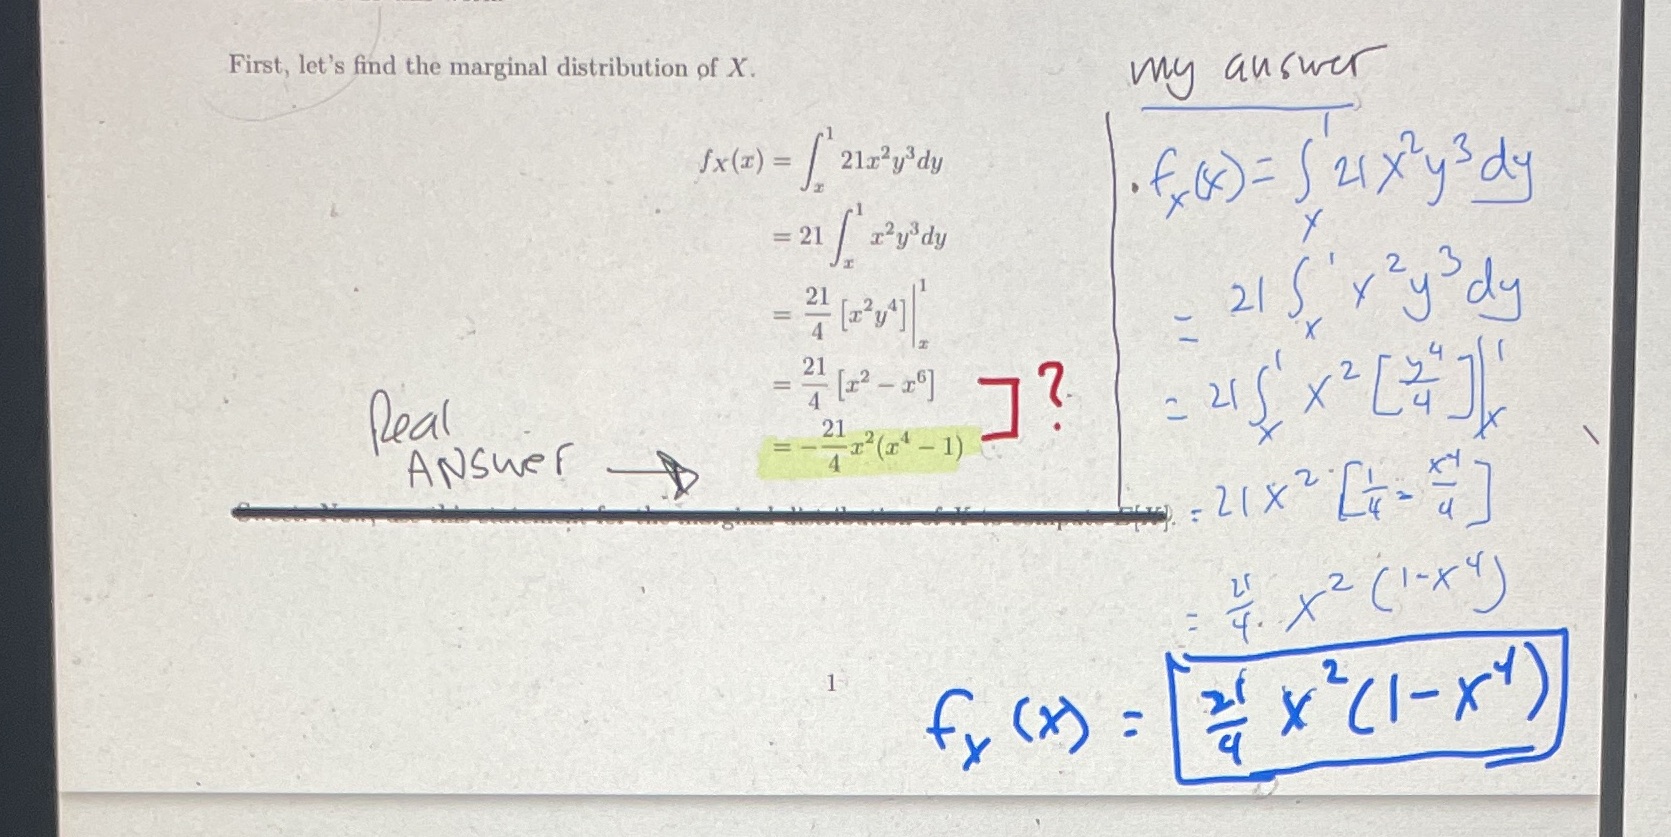 First, let's find the marginal distribution of X.
f_X(x) = ∫_x^1 21x²y³dy
= 21 ∫_x^1 x²y³dy
= 21/4 [x²y⁴]|_x^1
= 21/4 [x² − x⁶]
= −21/4 x²(x⁴ − 1)
] ?
Real
ANSWER →
1
my answer
. f_x(x) = ∫_x^1 21x²y³ dy
= 21 ∫_x^1 x²y³ dy
= 21 ∫_x^1 x² [y⁴/4]|_x^1
= 21x² [1/4 - x⁴/4]
= 21/4 . x² (1-x⁴)
f_x (x) = 21/4 x² (1-x⁴)